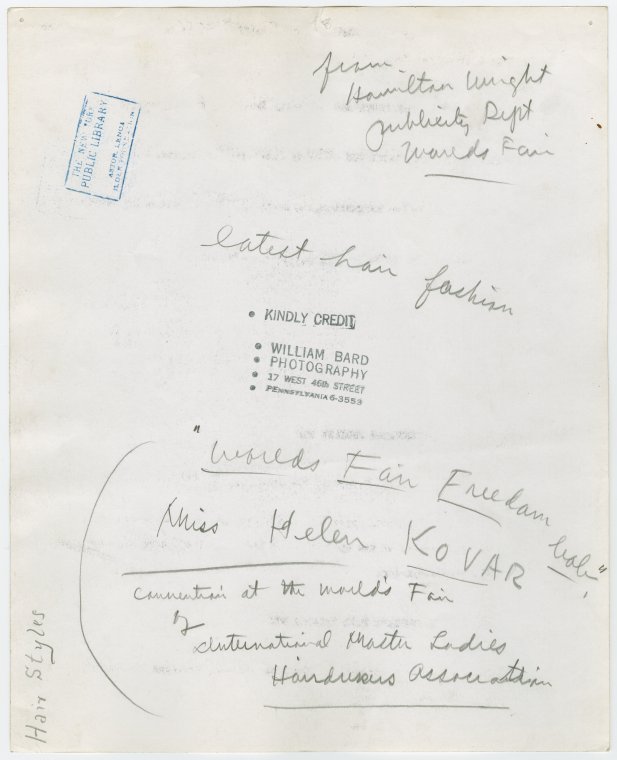 from
Hamilton Wright
publicity Dept
Worlds Fair
THE NEW YORK
PUBLIC LIBRARY
ASTOR, LENOX
latest hair fashion
KINDLY CREDIT
WILLIAM BARD
PHOTOGRAPHY
17 WEST 46th STREET
PENNSYLVANIA 6-3553
"Worlds Fair Freedom bob"
Miss Helen KOVAR
Convention at the World's Fair
of
International Master Ladies
Hairdressers Association
Hair Styles